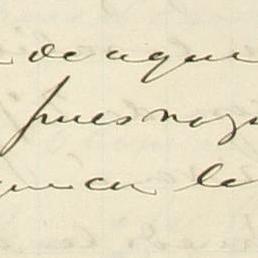 de aque
pues no qu
que en le